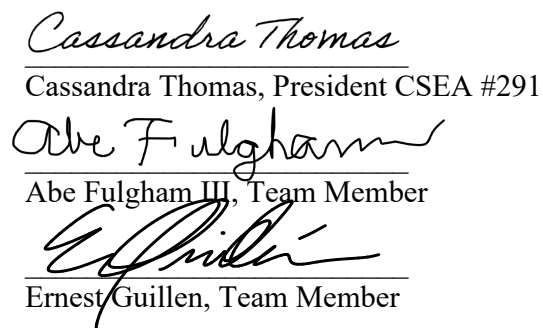 Cassandra Thomas
Cassandra Thomas, President CSEA #291
Abe Fulgham
Abe Fulgham III, Team Member
E Guillén
Ernest Guillen, Team Member